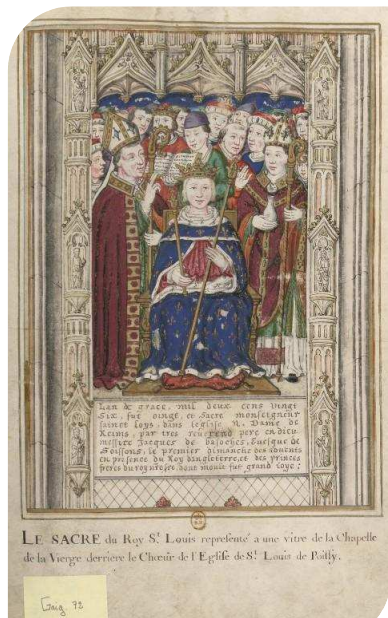 Lan de grace, mil deux cens vingt
Six, fut oingt, et Sacre monseigneur
sainct Loys, dans leglise N. Dame de
Reims, par tres reverend pere en dieu
messire Jacques de basoches, Evesque de
Soissons, le premier dimanche des
en presence du Roy dangleterre, et des princes
freres du roy dont moult fut grand Joye;
LE SACRE du Roy St. Louis representé a une vitre de la Chapelle
de la Vierge derriere le Chœur de l'Eglise de St. Louis de Poissy.
Gaig. 72